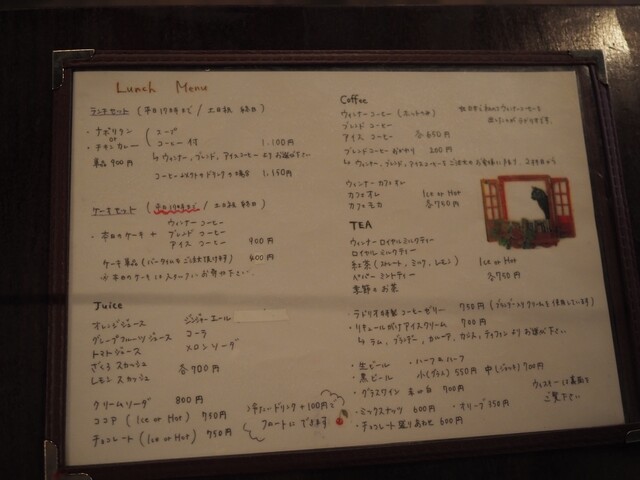 Lunch Menu
ランチセット (平日17時まで / 土日祝 終日)
・ナポリタン
or
チキンカレー
スープ
コーヒー付 1,100円
単品 900円
↳ ウィンナー、ブレンド、アイスコーヒーよりお選び下さい
コーヒー以外のドリンクの場合 1,150円
ケーキセット (平日19時まで / 土日祝 終日)
・本日のケーキ +
ウィンナーコーヒー
ブレンドコーヒー
アイスコーヒー 900円
※ 本日のケーキはスタッフにお尋ね下さい。
Juice
オレンジジュース
グレープフルーツジュース
トマトジュース
ざくろスカッシュ
レモンスカッシュ
ジンジャーエール
コーラ
メロンソーダ
各700円
クリームソーダ 800円
ココア (Ice or Hot) 750円
チョコレート (Ice or Hot) 750円
ドリンク +100円で
フロートにできます
Coffee
ウィンナーコーヒー (ホットのみ)
ブレンドコーヒー
アイスコーヒー 各650円
ブレンドコーヒーおかわり 200円
ウィンナーカフェオレ
カフェオレ
カフェモカ
Ice or Hot
各750円
TEA
ウィンナーロイヤルミルクティー
ロイヤルミルクティー
紅茶 (ストレート、ミルク、レモン)
ペパーミントティー
季節のお茶
Ice or Hot
各750円
・ラドリオ特製コーヒーゼリー 750円
・リキュールがけアイスクリーム 700円
↳ ラム、ブランデー、カルーア、カシス、ティフィンよりお選び下さい
・生ビール ・ハーフ&ハーフ
・黒ビール 小(グラス) 550円 中(ジョッキ) 700円
・グラスワイン 赤or白 700円
・ミックスナッツ 600円 ・オリーブ 350円
・チョコレート盛りあわせ 600円
ウィスキーは裏面を
ご覧下さい